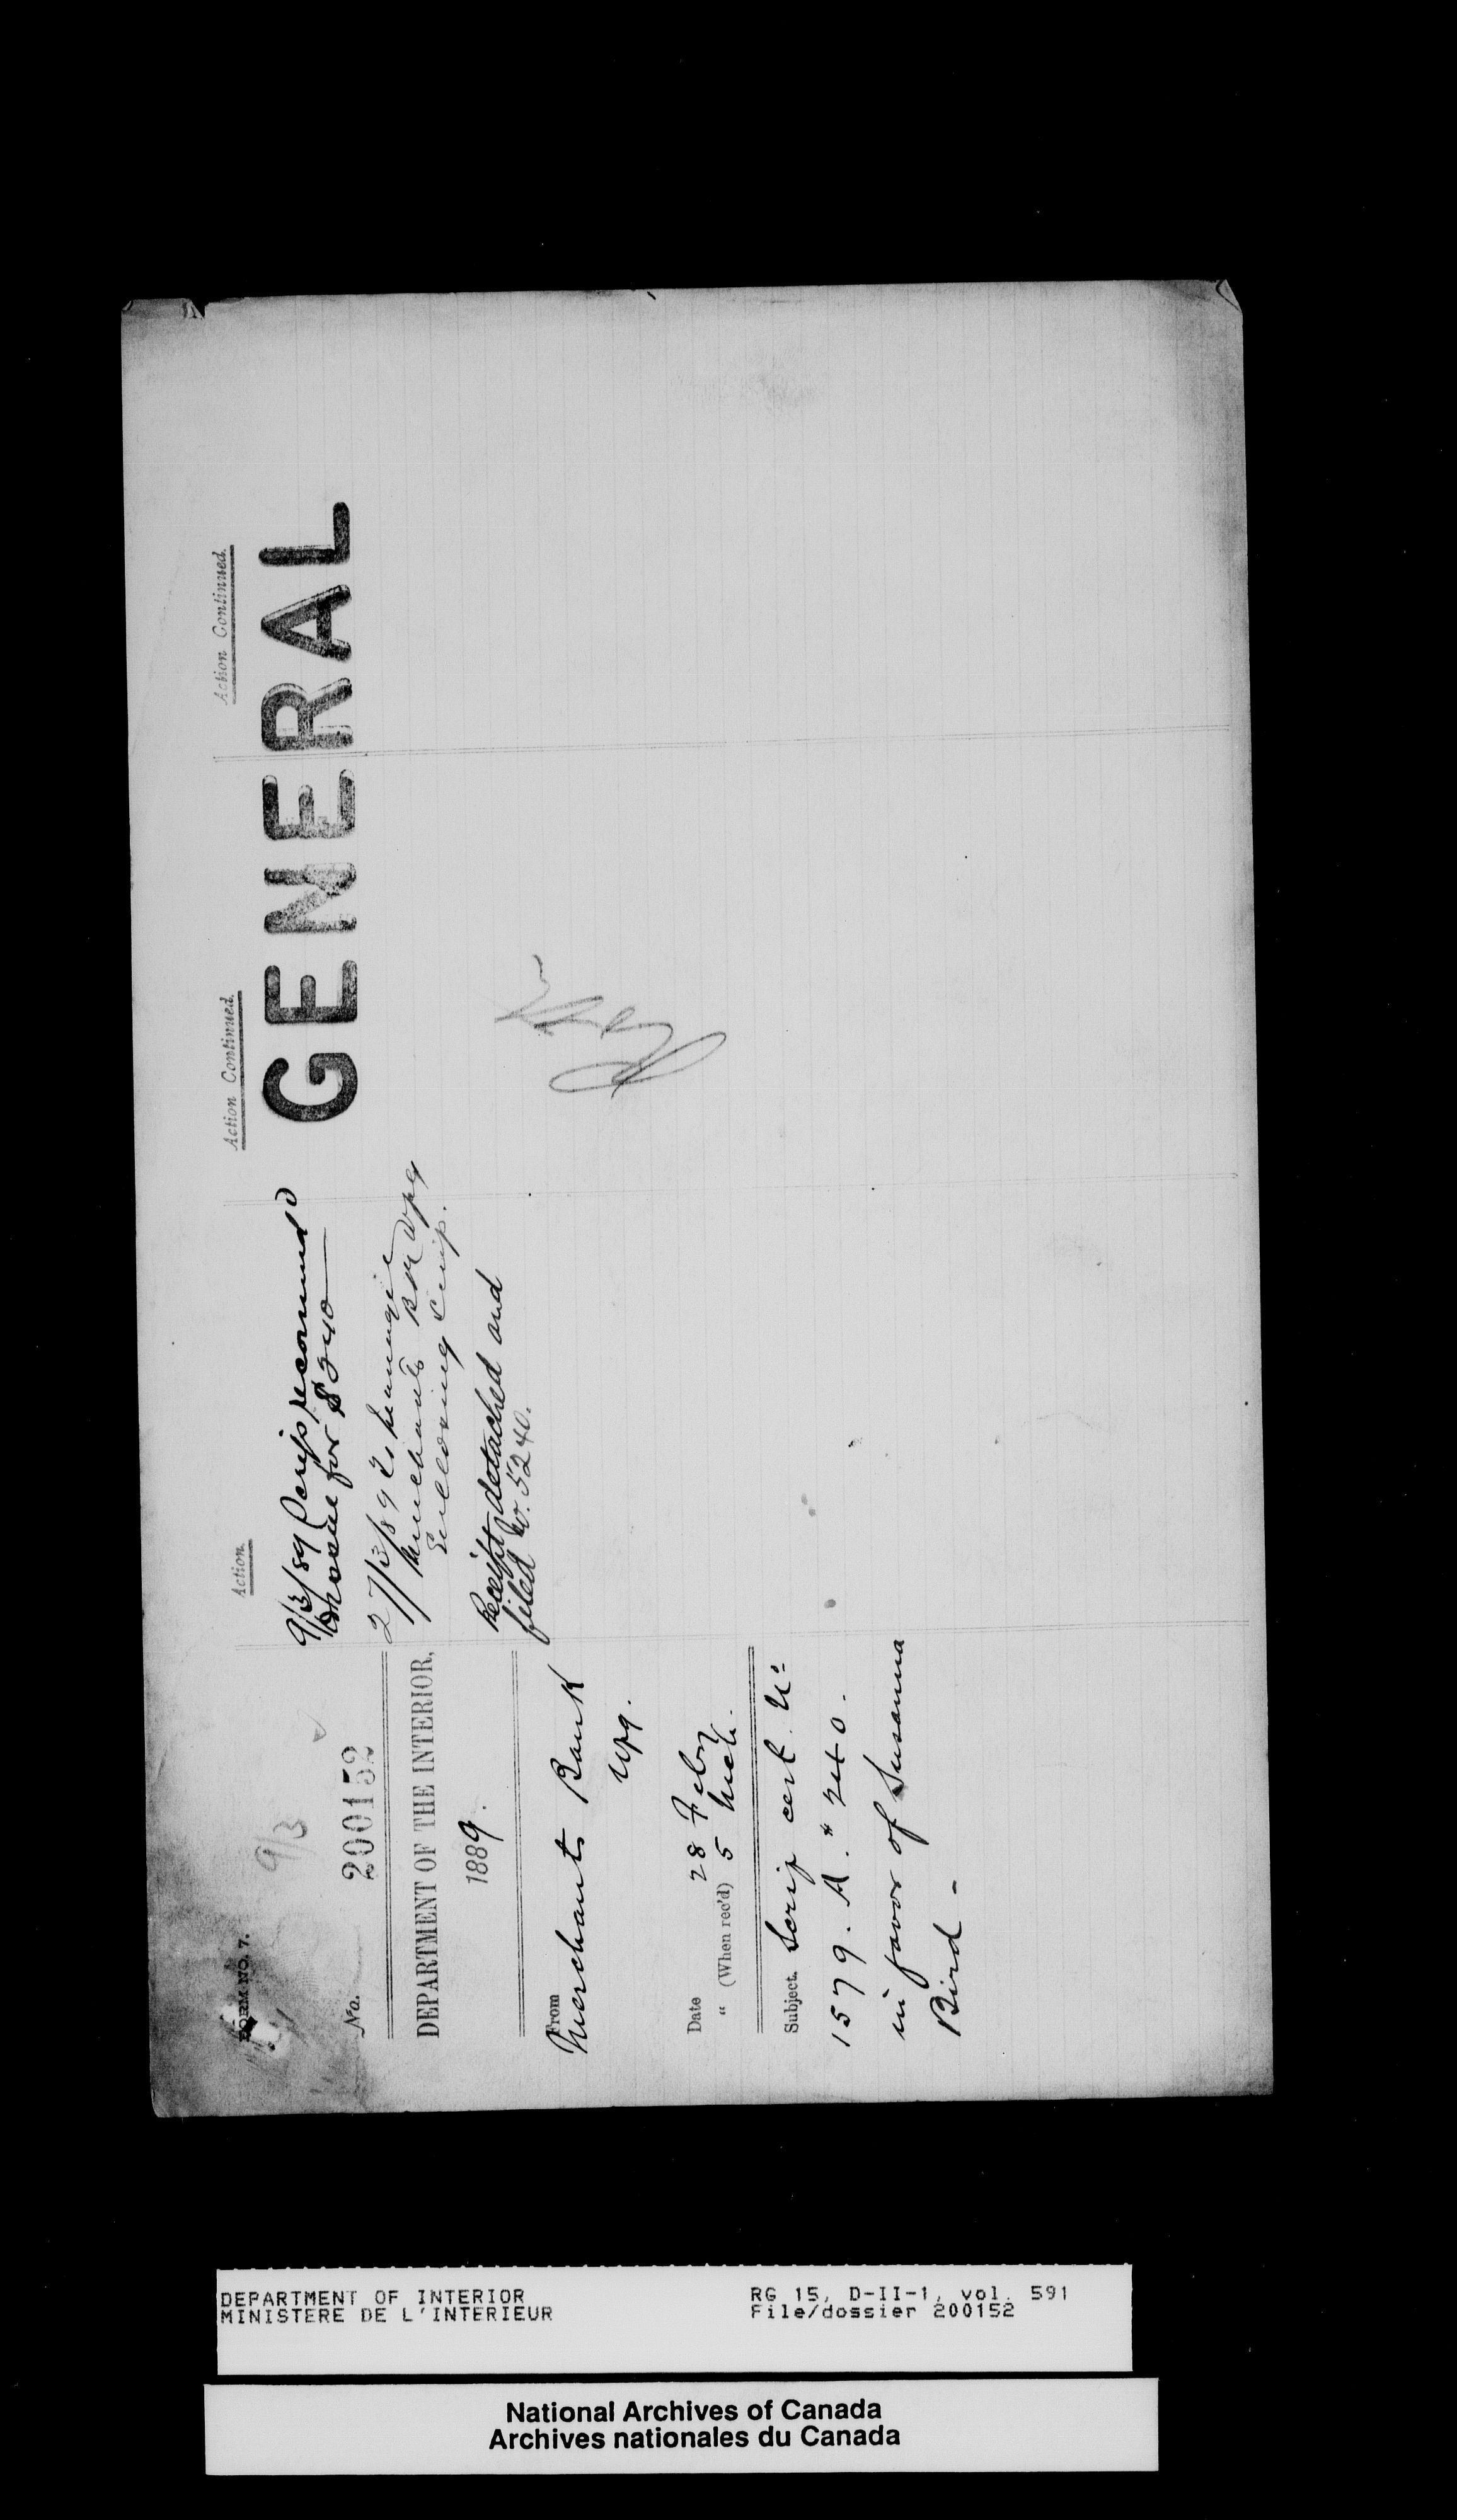 FORM NO. 7.
9/3
No. 200152
DEPARTMENT OF THE INTERIOR,
1889.
From
Merchants Bank
Wpg.
Date 28 Feby
" (When rec'd) 5 Mch.
Subject. Scrip cert. No
1579. A. " 240.
in favor of Susanna
Bird -
Action.
9/3/89 Scrip
issue for $240
27/3/89 To manager
Merchants Bk Wpg
Enclosing Scrip.
Receipt detached and
filed No. 5240.
Action Continued.
Action Continued.
GENERAL
DEPARTMENT OF INTERIOR
MINISTERE DE L'INTERIEUR
RG 15, D-II-1, vol. 591
File/dossier 200152
National Archives of Canada
Archives nationales du Canada